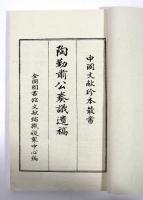 中国文献珍本叢書
陶勤肅公奏議遺稿
全國圖書館文献縮微複製中心編